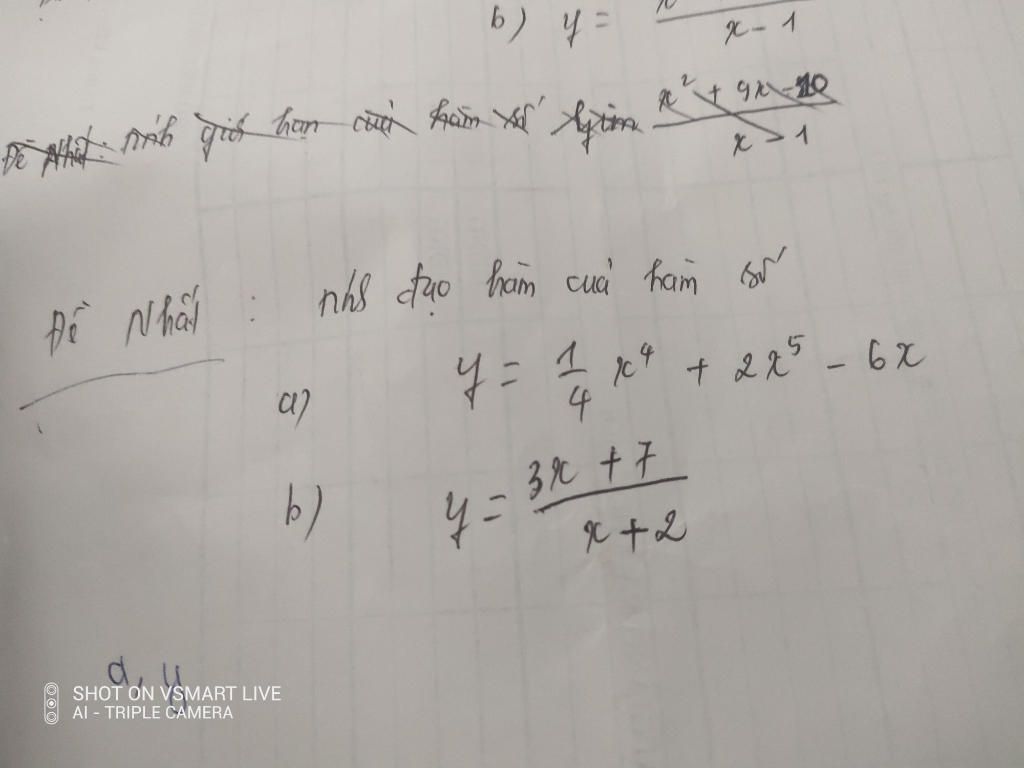 b) y =
x - 1
Đề Nhất: tính giới hạn của hàm số x² + 9x - 10
x - 1
Đề Nhất : tính đạo hàm của hàm số
a) y = 1/4 x⁴ + 2x⁵ - 6x
b) y = 3x + 7
x + 2
a, y
SHOT ON VSMART LIVE
AI - TRIPLE CAMERA